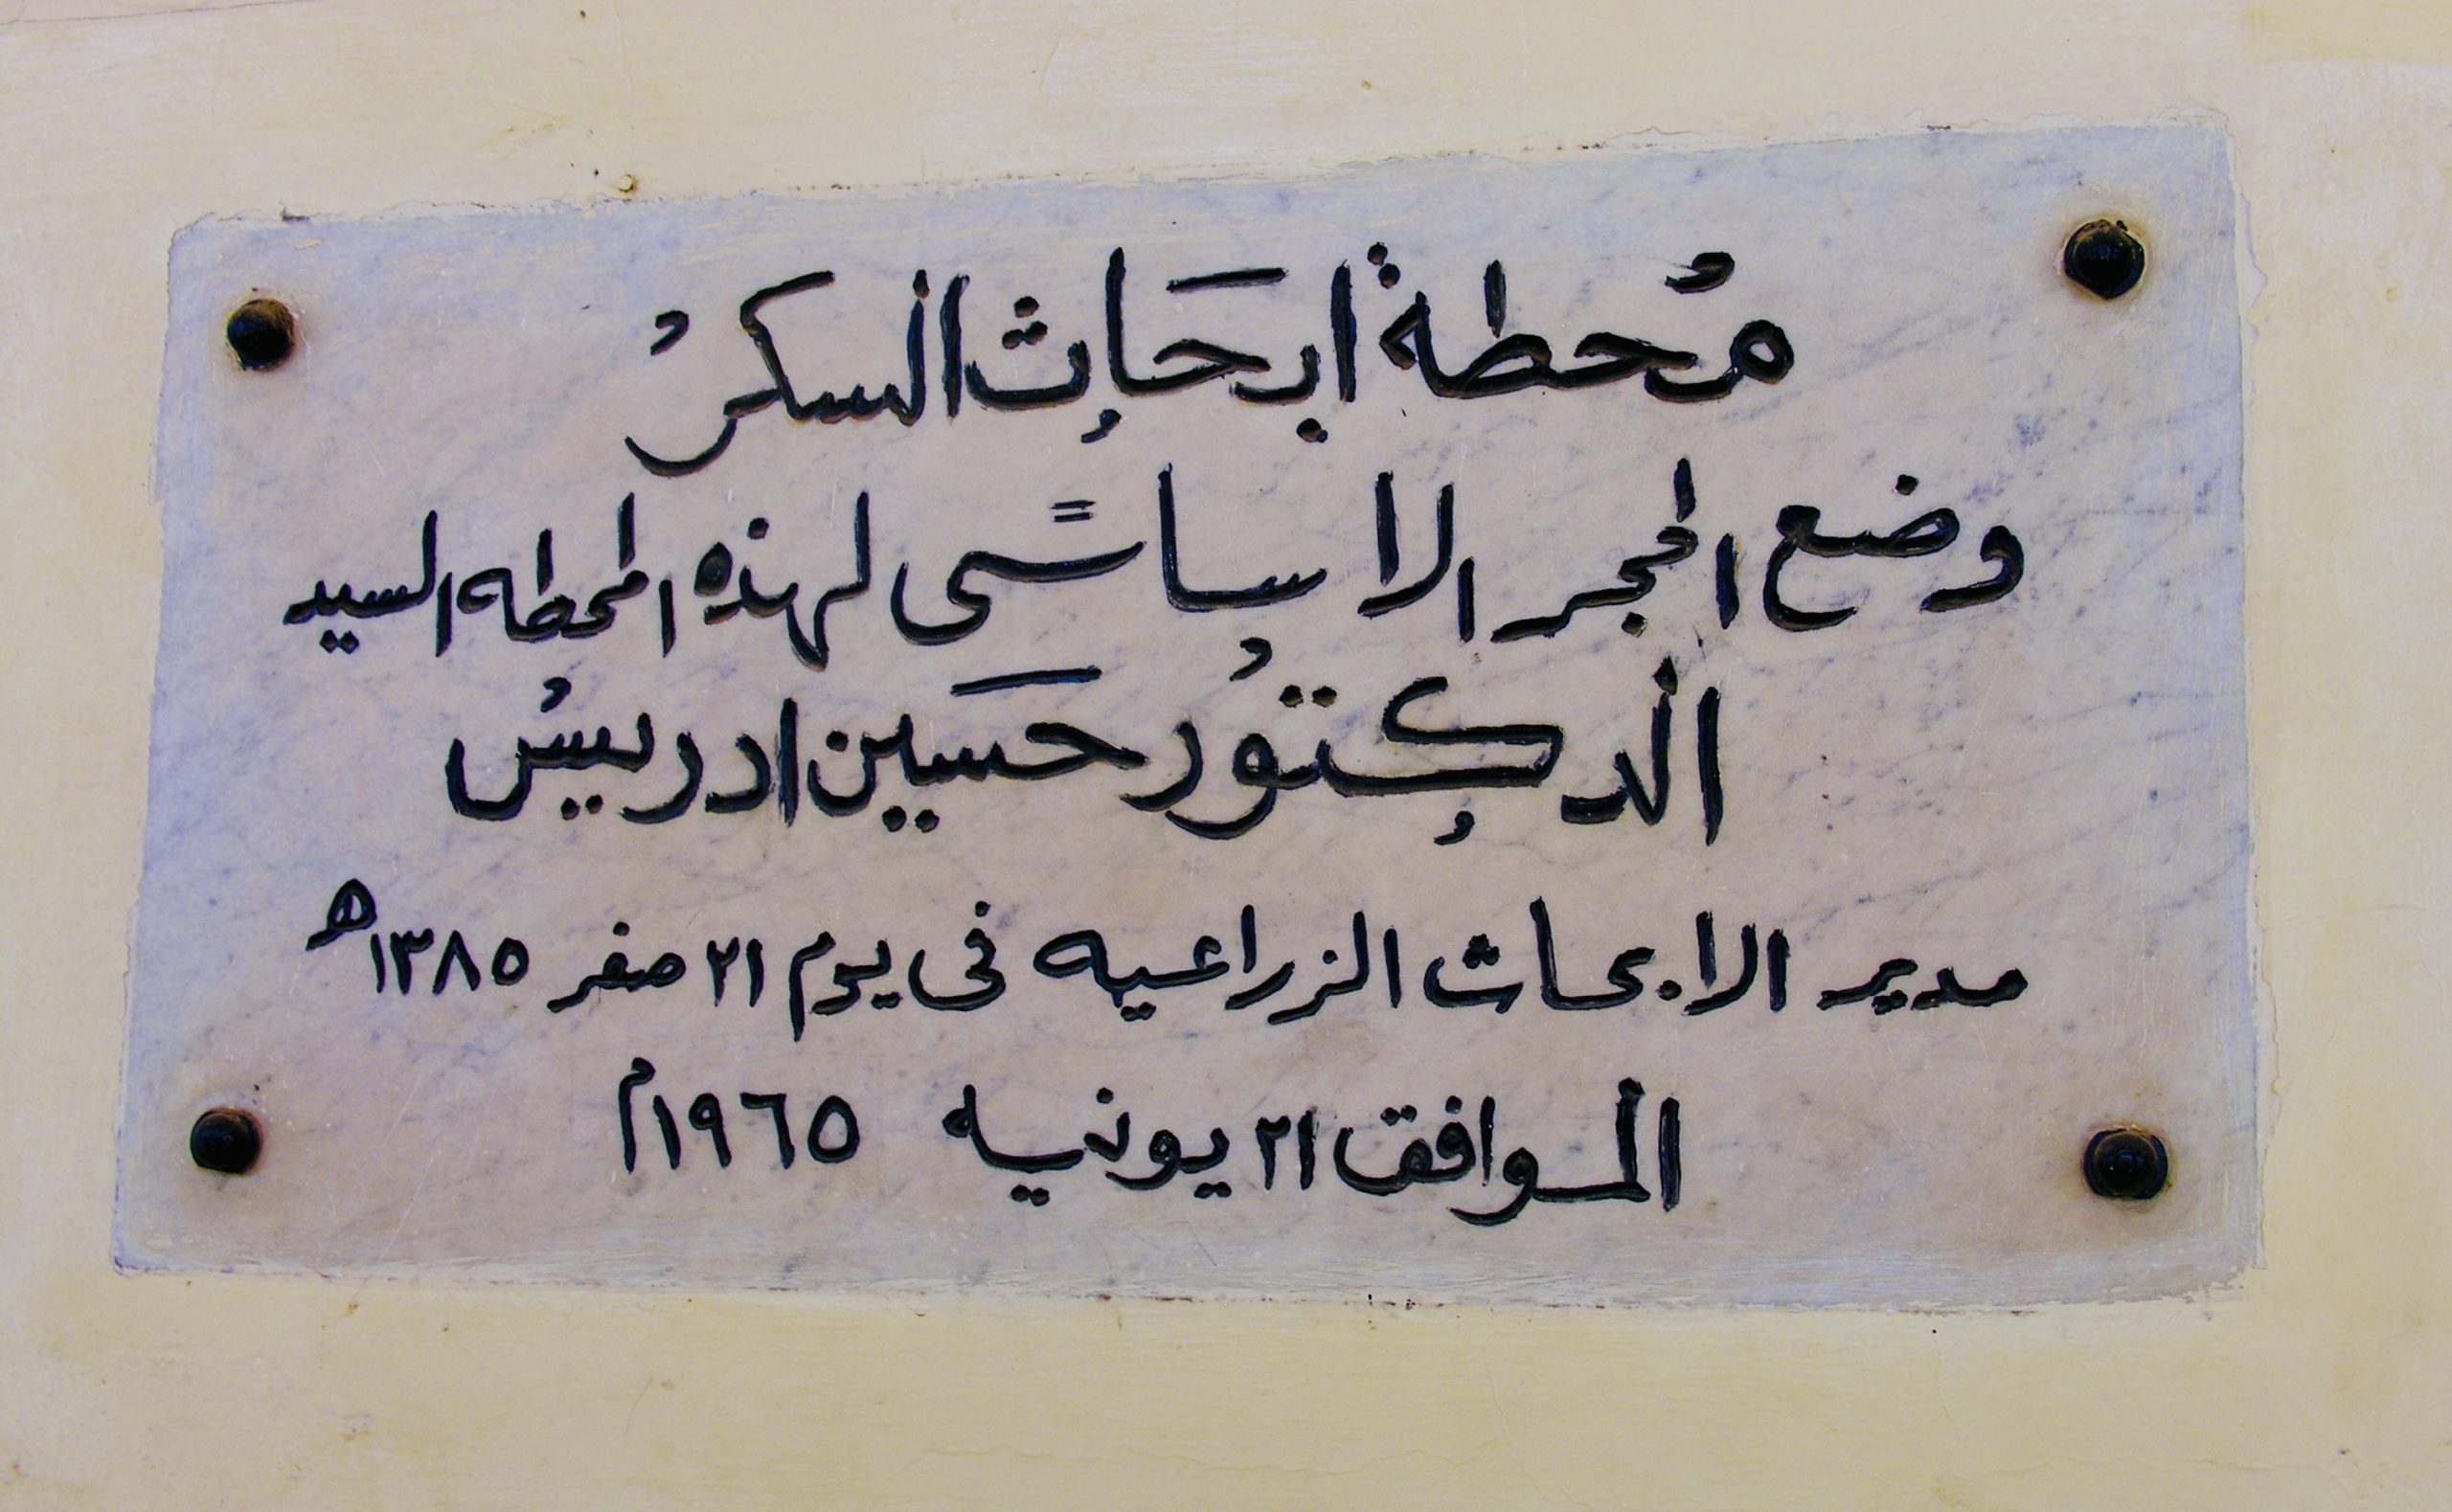 محطة ابحاث السكر
وضع الحجر الاساسى لهذه المحطه السيد
الدكتور حسين ادريس
مدير الابحاث الزراعيه فى يوم ٢١ صفر ١٣٨٥ه
الموافق ٢١ يونيه ١٩٦٥م